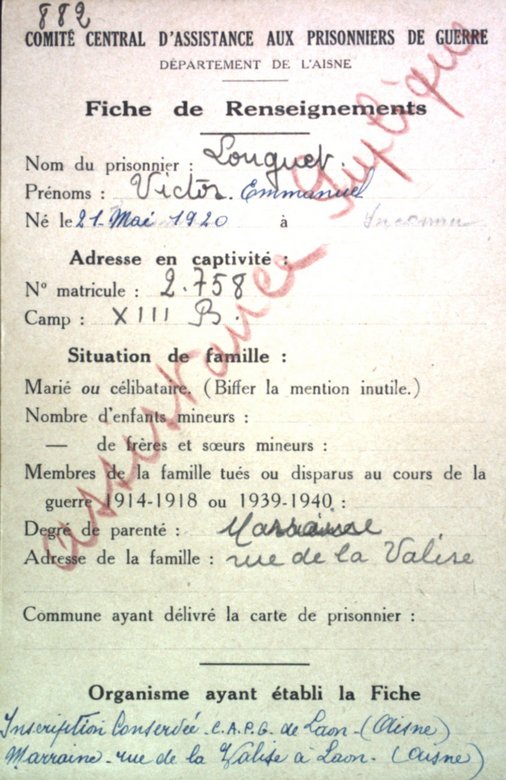 882
COMITÉ CENTRAL D'ASSISTANCE AUX PRISONNIERS DE GUERRE
DÉPARTEMENT DE L'AISNE
Fiche de Renseignements
Nom du prisonnier : Longuet.
Prénoms : Victor. Emmanuel
Né le 21. Mai 1920 à Inconnu
Adresse en captivité :
N° matricule : 2.758
Camp : XIII B.
Situation de famille :
Marié ou célibataire. (Biffer la mention inutile.)
Nombre d'enfants mineurs :
— de frères et sœurs mineurs :
Membres de la famille tués ou disparus au cours de la
guerre 1914-1918 ou 1939-1940 :
Degré de parenté : Marraine
Adresse de la famille : rue de la Valise
Commune ayant délivré la carte de prisonnier :
Organisme ayant établi la Fiche
Inscription Conservée C.A.P.G. de Laon (Aisne)
Marraine rue de la Valise à Laon. (Aisne)
assistance